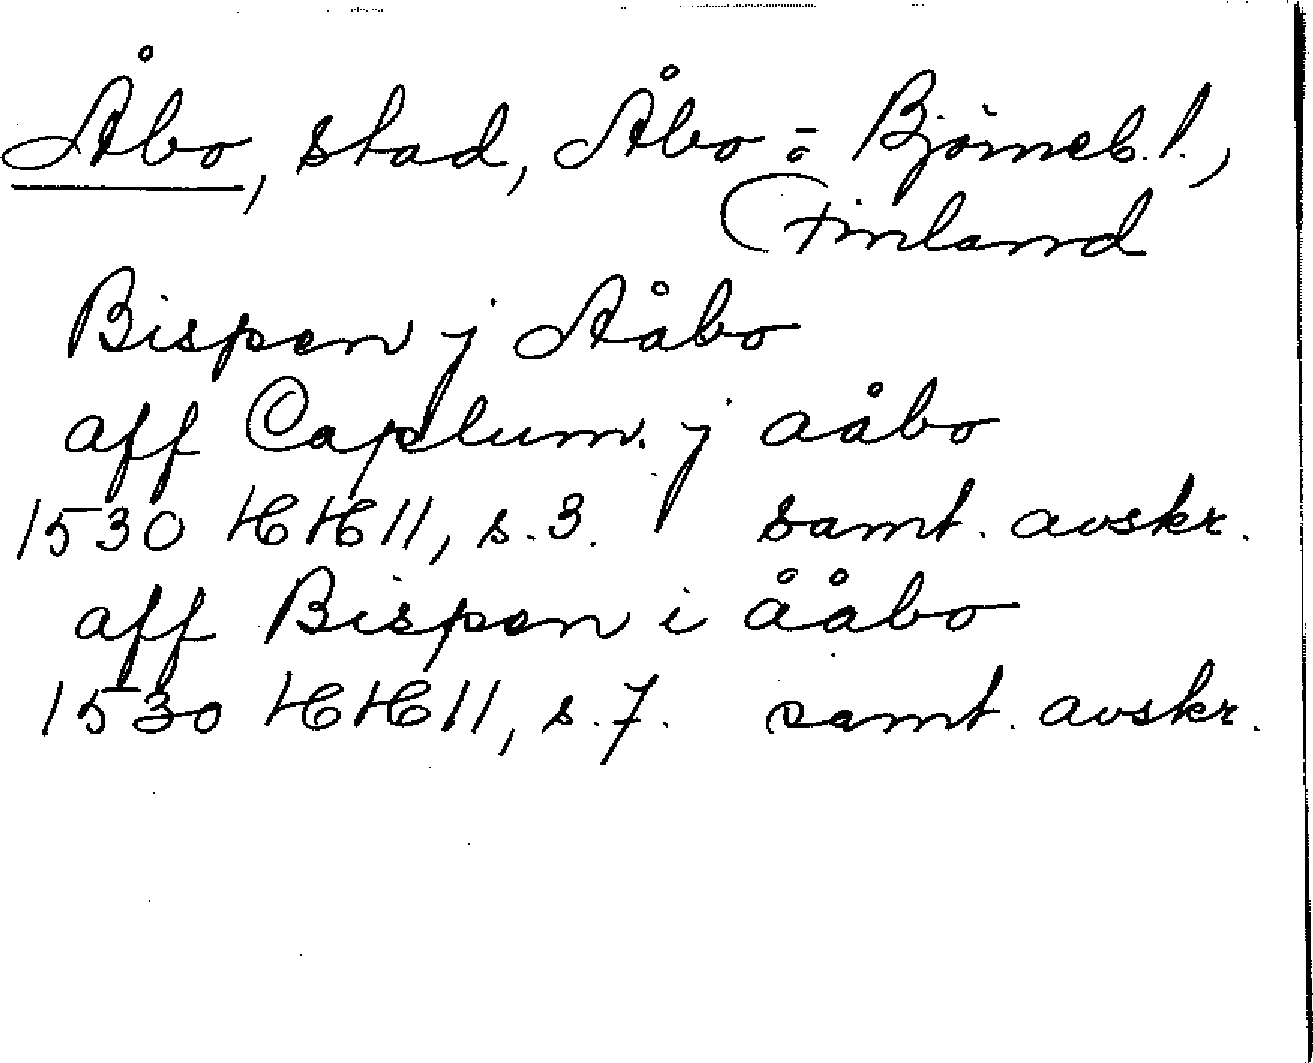 Åbo, stad, Åbo = Björneb. l.,
Finland
Bispen j Aåbo
aff Caplum. j aåbo
1530 HH 11, s. 3. samt. avskr.
aff Bispen i ååbo
1530 HH 11, s. 7. samt. avskr.